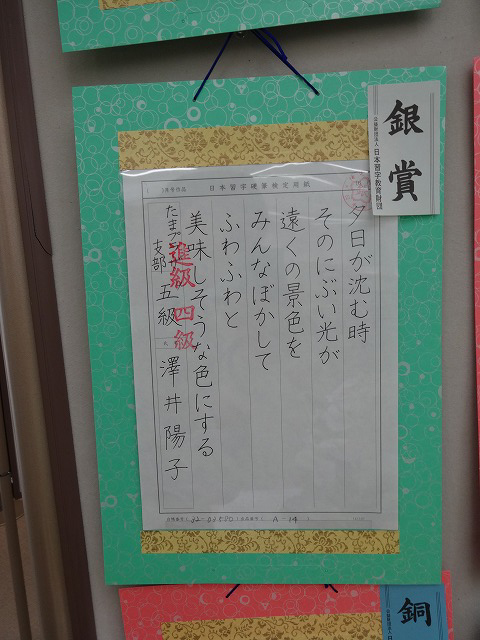 銀賞
公益財団法人 日本習字教育財団
日本習字硬筆検定用紙
夕日が沈む時
そのにぶい光が
遠くの景色を
みんなぼかして
ふわふわと
美味しそうな色にする
支部 五級 澤井陽子
進級 四級
A-14
銅